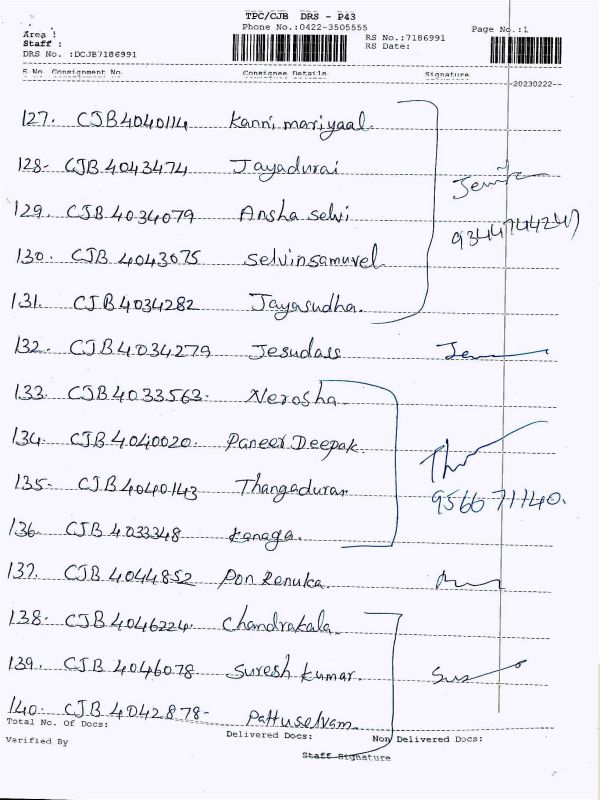 TPC/CJB DRS - P43
Phone No.:0422-3505555
Area :
Staff :
DRS No.:DCJB7186991
RS No.:7186991
RS Date:
Page No.:1
S No. Consignment No. Consignee Details Signature
--20230222--
127. CJB4040114 Kanni mariyaal.
128- CJB 4043474 Jayadurai
129. CJB 4034079 Ansha selvi
130. CJB 4043075 Selvinsamuvel
9344744247
131. CJB 4034282 Jayasudha.
132. CJB4034279 Jesudass
133. CJB4033563. Nerosha
134. CJB 4040020. Paneer Deepak.
135- CJB4040143 Thangadurai
9566071140.
136. CJB 4033348 Kanaga.
137. CJB 4044852 Pon Renuka.
138. CJB 4046224. Chandrakala.
139. CJB 4046078 Suresh kumar.
140. CJB 4042878- Pattuselvam.
Total No. Of Docs: Delivered Docs: Non Delivered Docs:
Verified By Staff Signature